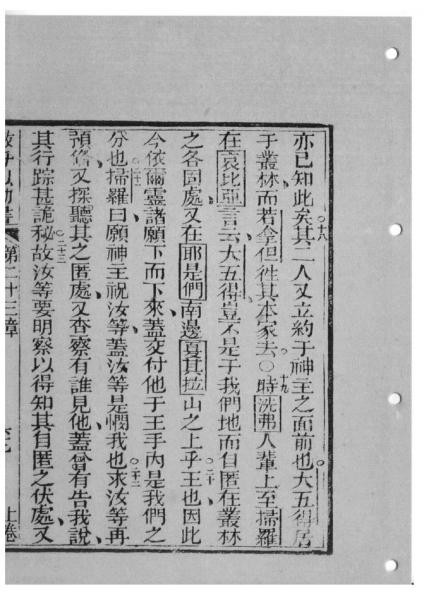 亦已知此矣○十八其二人又立約于神主之面前也大五得居
于叢林而若拿但徃其本家去○十九時洗弗人輩上至掃羅
在哀比亞言云大五得豈不是于我們地而自匿在叢林
之各固處又在耶是們南邊夏其拉山之上乎○二十王也因此
今依爾靈諸願下而下來蓋交付他于王手內是我們之
分也○二十一掃羅曰願神主祝汝等蓋汝等是憫我也○二十二求汝等再
預備又探聽其之匿處又查察有誰見他蓋曾有告我說
其行踪甚詭秘○二十三故汝等要明察以得知其自匿之伏處又
第二十三章
上卷